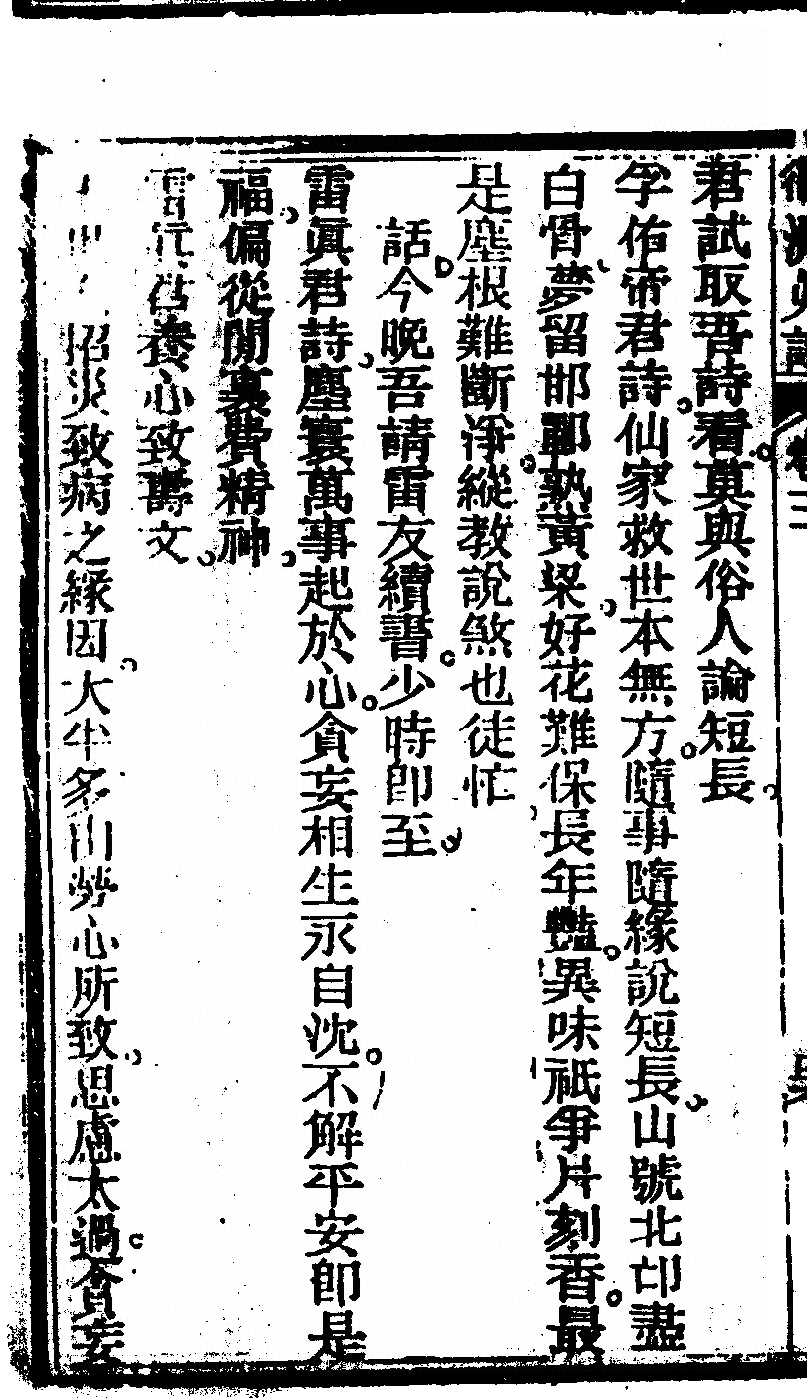 君試取吾詩看莫與俗人論短長
孚佑帝君詩仙家救世本無方隨事隨緣說短長山號北邙盡
白骨夢留邯鄲熟黃粱好花難保長年艷異味祇爭片刻香最
是塵根難斷淨縱教說煞也徒忙
話今晚吾請雷友續書少時卽至
雷眞君詩塵寰萬事起於心貪妄相生永自沈不解平安卽是
福偏從閒裏費精神
養心致壽文
招災致病之緣因大半多由勞心所致思慮太過貪妄